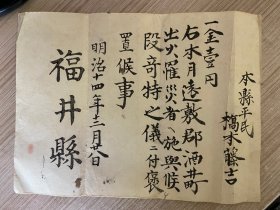 本縣平民
橋本藤吉
一金壹円
右本月遠敷郡酒井町
出火罹災者へ施與候
段奇特之儀ニ付褒
置候事
明治十四年三月日
福井縣